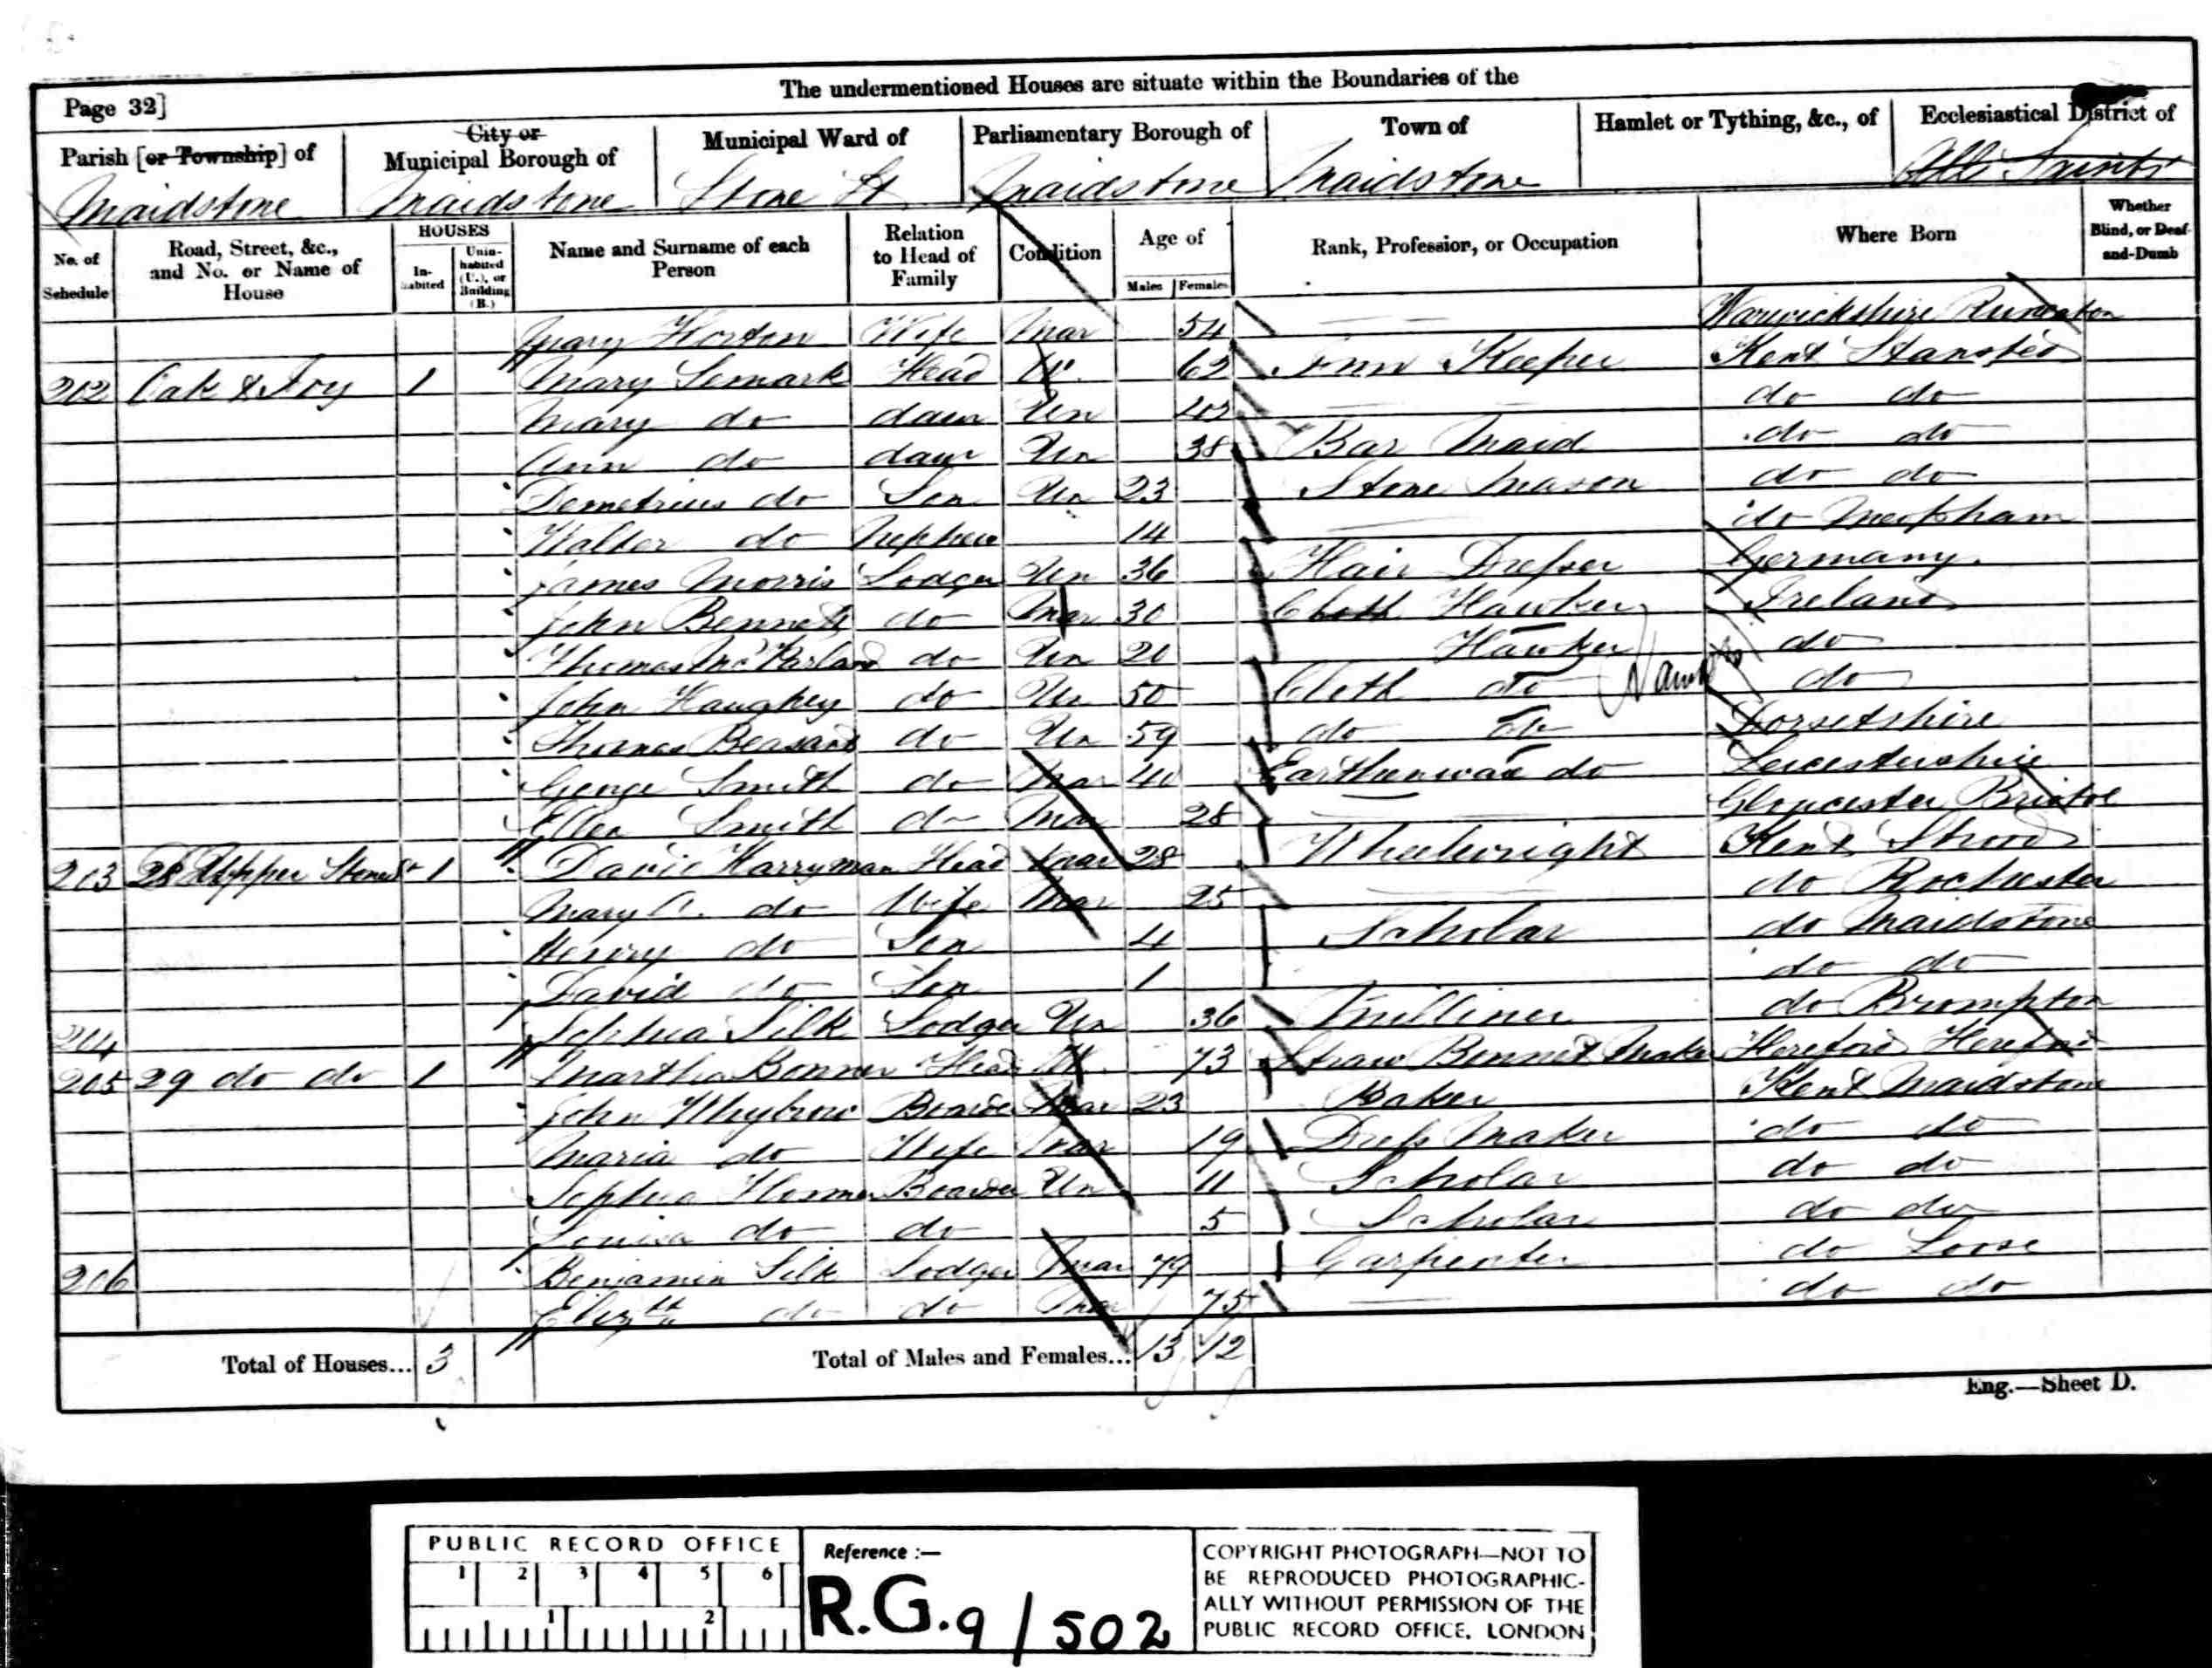 The undermentioned Houses are situate within the Boundaries of the
Page 32]
Parish [or Township] of City or Municipal Borough of Municipal Ward of Parliamentary Borough of Town of Hamlet or Tything, &c., of Ecclesiastical District of
Maidstone Maidstone Stone St Maidstone Maidstone All Saints
No. of Schedule Road, Street, &c., and No. or Name of House HOUSES Inhabited Uninhabited (U.), or Building (B.) Name and Surname of each Person Relation to Head of Family Condition Age of Males Females Rank, Profession, or Occupation Where Born Whether Blind, or Deaf-and-Dumb
Mary Horton Wife Mar 54 Warwickshire Nuneaton
202 Oak & Ivy 1 Mary Semark Head W. 62 Inn Keeper Kent Stansted
Mary do daur Un do do
Ann do daur Un 38 Bar Maid do do
Demetrius do Son Un 23 Stone Mason do do
Walter do Nephew 14 do Meopham
James Morris Lodger Un 36 Hair Dresser Germany
John Bennett do Mar 30 Cloth Hawker Ireland
Thomas do Un 20 Hawker do
John Haughey do Un 50 Cloth do do
Thomas Beasant do Un 59 do do Dorsetshire
George Smith do Mar 40 Earthenware do Leicestershire
Ellen Smith do Mar 28 Gloucester Bristol
203 28 Upper Stone St 1 David Harryman Head Mar 28 Wheelwright Kent Strood
Mary A. do Wife Mar 25 do Rochester
Henry do Son 4 Scholar do Maidstone
David do Son 1 do do
204 Sophia Silk Lodger Un 36 Milliner do Brompton
205 29 do do 1 Martha Bonner Head W. 73 Straw Bonnet Maker Hereford Hereford
John Whybrow Boarder Mar 23 Baker Kent Maidstone
Maria do Wife Mar 19 Dress Maker do do
Sophia Boarder Un 11 Scholar do do
Louisa do do 5 Scholar do do
206 Benjamin Silk Lodger Mar 79 Carpenter do Loose
Elizth do do Mar 75 do do
Total of Houses... 3 Total of Males and Females... 13 12
Eng.—Sheet D.
PUBLIC RECORD OFFICE
1 2 3 4 5 6
1 2
Reference :—
R.G. 9 / 502
COPYRIGHT PHOTOGRAPH—NOT TO
BE REPRODUCED PHOTOGRAPHIC-
ALLY WITHOUT PERMISSION OF THE
PUBLIC RECORD OFFICE, LONDON